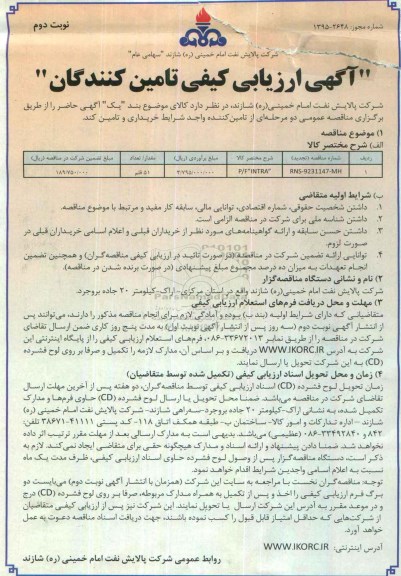 شماره مجوز: ۱۳۹۵-۲۶۴۸
نوبت دوم
شرکت پالایش نفت امام خمینی (ره) شازند "سهامی عام"
"آگهی ارزیابی کیفی تامین کنندگان"
شرکت پالایش نفت امام خمینی(ره) شازند، در نظر دارد کالای موضوع بند "یک" آگهی حاضر را از طریق
برگزاری مناقصه عمومی دو مرحله‌ای از تامین‌کننده واجد شرایط خریداری و تامین کند.
۱) موضوع مناقصه
الف) شرح مختصر کالا
ردیف شماره مناقصه (تجدید) شرح مختصر کالا مبلغ برآوردی (ریال) مقدار/ تعداد مبلغ تضمین شرکت در مناقصه (ریال)
۱ RNS-9231147-MH P/F"INTRA" ۵۱ قلم
ب) شرایط اولیه متقاضی
۱. داشتن شخصیت حقوقی، شماره اقتصادی، توانایی مالی، سابقه کار مفید و مرتبط با موضوع مناقصه.
۲. داشتن شناسه ملی برای شرکت در مناقصه الزامی است.
۳. داشتن حسن سابقه و ارائه گواهینامه‌های مورد نظر از خریداران قبلی و اعلام اسامی خریداران قبلی در
صورت لزوم.
۴. توانایی ارائه تضمین شرکت در مناقصه (در صورت تائید در ارزیابی کیفی مناقصه‌گران) و همچنین تضمین
انجام تعهدات به میزان ده درصد مجموع مبلغ پیشنهادی (در صورت برنده شدن در مناقصه).
۲) نام و نشانی دستگاه مناقصه‌گزار
شرکت پالایش نفت امام خمینی(ره) شازند واقع در استان مرکزی-اراک-کیلومتر ۲۰ جاده بروجرد.
۳) مهلت و محل دریافت فرم‌های استعلام ارزیابی کیفی
متقاضیانی که دارای شرایط اولیه (بند ب) بوده و آمادگی لازم برای انجام مناقصه مذکور را دارند، می‌توانند پس
از انتشار آگهی نوبت دوم (سه روز پس از انتشار آگهی نوبت اول) به مدت پنج روز کاری ضمن ارسال تقاضای
شرکت در مناقصه را از طریق نمابر ۳۳۶۷۲۰۱۳-۰۸۶، فرم‌های استعلام ارزیابی کیفی را از پایگاه اینترنتی این
شرکت به آدرس WWW.IKORC.IR دریافت و بر اساس آن، مدارک لازمه را تکمیل و صرفا بر روی لوح فشرده
(CD) به این شرکت تحویل یا ارسال نمایند.
۴) زمان و محل تحویل اسناد ارزیابی کیفی (تکمیل شده توسط متقاضیان)
زمان تحویل لوح فشرده (CD) اسناد ارزیابی کیفی توسط مناقصه‌گران، دو هفته پس از آخرین مهلت ارسال
تقاضای شرکت در مناقصه می‌باشد. ضمنا محل تحویل یا ارسال لوح فشرده (CD) حاوی فرم‌ها و مدارک
تکمیل شده، به نشانی اراک-کیلومتر ۲۰ جاده بروجرد-سه‌راهی شازند- شرکت پالایش نفت امام خمینی (ره)
شازند – اداره تدارکات و امور کالا- ساختمان پ- طبقه همکف اتاق ۱۱۸-کد پستی ۴۱۱۱۱-۳۸۶۷۱ تلفن:
۸۴۲ و ۳۳۴۹۲۸۴۰-۰۸۶ (عظیمی) می‌باشد. بدیهی است به مدارک ارسالی بعد از مهلت مقرر ترتیب اثر داده
نخواهد شد. ضمنا دادن پیشنهاد و ارائه اسناد و مدارک هیچگونه حقی برای متقاضی ایجاد نمی‌کند. لازم به
ذکر است، دستگاه مناقصه‌گزار پس از وصول لوح فشرده حاوی اسناد ارزیابی کیفی، ظرف مدت یک ماه
نسبت به اعلام اسامی واجدین شرایط اقدام خواهد نمود.
توجه: مناقصه‌گران نخست با مراجعه به سایت این شرکت (همزمان با انتشار آگهی نوبت دوم) می‌بایست دو
برگ فرم ارزیابی کیفی را اخذ و پس از تکمیل به همراه مدارک مربوطه، صرفا بر روی لوح فشرده (CD) درج
و در موعد مقرر به آدرس این شرکت ارسال یا تحویل نمایند. این شرکت نیز پس از ارزیابی کیفی متقاضیان
از شرکت‌هایی که حداقل امتیاز قابل قبول را کسب نموده باشند، جهت دریافت اسناد مناقصه دعوت به عمل
خواهد آورد.
آدرس اینترنتی: WWW.IKORC.IR
روابط عمومی شرکت پالایش نفت امام خمینی (ره) شازند